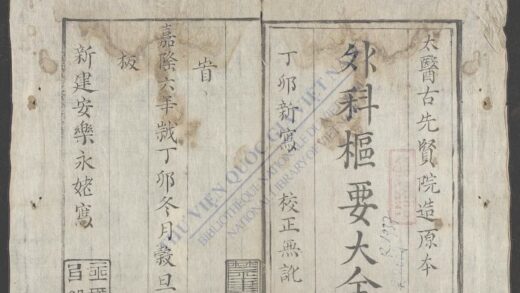 太醫古先賢院造原本
外科樞要大全
丁卯新寫 校正無訛
旹
嘉隆六年歲丁卯冬月穀旦
板
新建安樂永姥寫
THƯ VIỆN QUỐC GIA VIỆT N
BIBLIOTHÈQUE NATIONALE DU
NATIONAL LIBRARY OF VIET